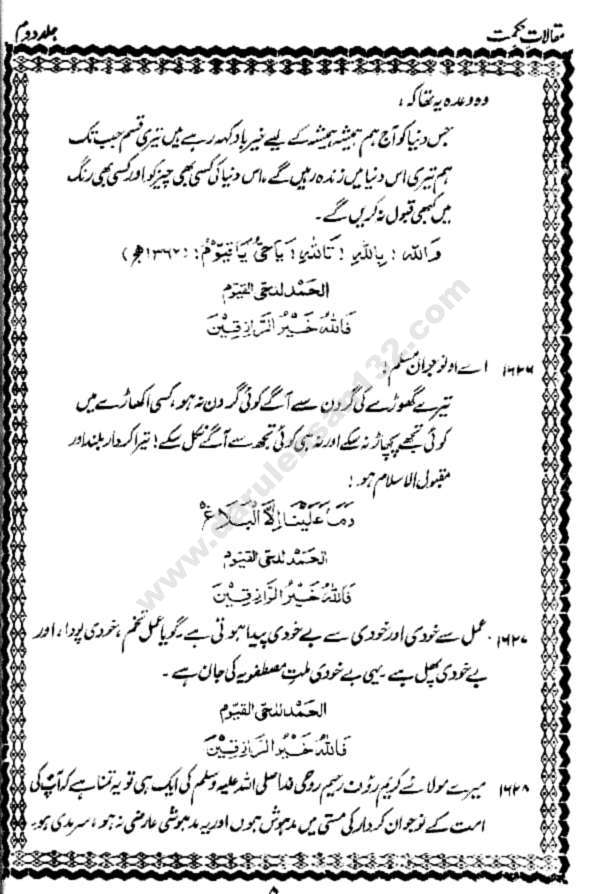 مقالات حکمت
جلد دوم
وہ وعدہ یہ تھا کہ ؛
جس دنیا کو آج ہم ہمیشہ ہمیشہ کے لیے خیر باد کہہ رہے ہیں تیری قسم جب تک
ہم تیری اس دنیا میں زندہ رہیں گے ۔ اس دنیا کی کسی بھی چیز کو اور کسی بھی رنگ
میں کبھی قبول نہ کریں گے ۔
وَاللہ ! بِاللّٰہِ ! تَاللّٰہِ ! یَاحَیُّ یَا قَیُّوْمُ ! (۱۳۶۲ھ)
الحمد للحی القیوم
فَاللّٰہُ خَیْرُ الرَّازِقِیْنَ
۱۶۲۶ اے او نوجوان مسلم !
تیرے گھوڑے کی گردن سے آگے کوئی گردن نہ ہو، کسی اکھاڑے میں
کوئی تجھے پچھاڑ نہ سکے اور نہ ہی کوئی تجھ سے آگے نکل سکے ! تیرا کردار بلند اور
مقبول الاسلام ہو !
وَمَا عَلَیْنَا اِلَّا الْبَلَاغُ
الحمد للحی القیوم
فَاللّٰہُ خَیْرُ الرَّازِقِیْنَ
۱۶۲۷ ۔ عمل سے خودی اور خودی سے بے خودی پیدا ہوتی ہے ۔ گویا عمل تخم ، خودی پودا ، اور
بے خودی پھل ہے ۔ یہی بے خودی ملتِ مصطفویہ کی جان ہے ۔
الحمد للحی القیوم
فَاللّٰہُ خَیْرُ الرَّازِقِیْنَ
۱۶۲۸ میرے مولائے کریم رؤف رحیم روحی فدا صلی اللہ علیہ وسلم کی ایک ہی تو یہ تمنا ہے کہ آپؐ کی
امت کے نوجوان کردار کی مستی میں مدہوش ہوں اور یہ مدہوشی عارضی نہ ہو ، سرمدی ہو ۔
۵
www.darulehsan132.com